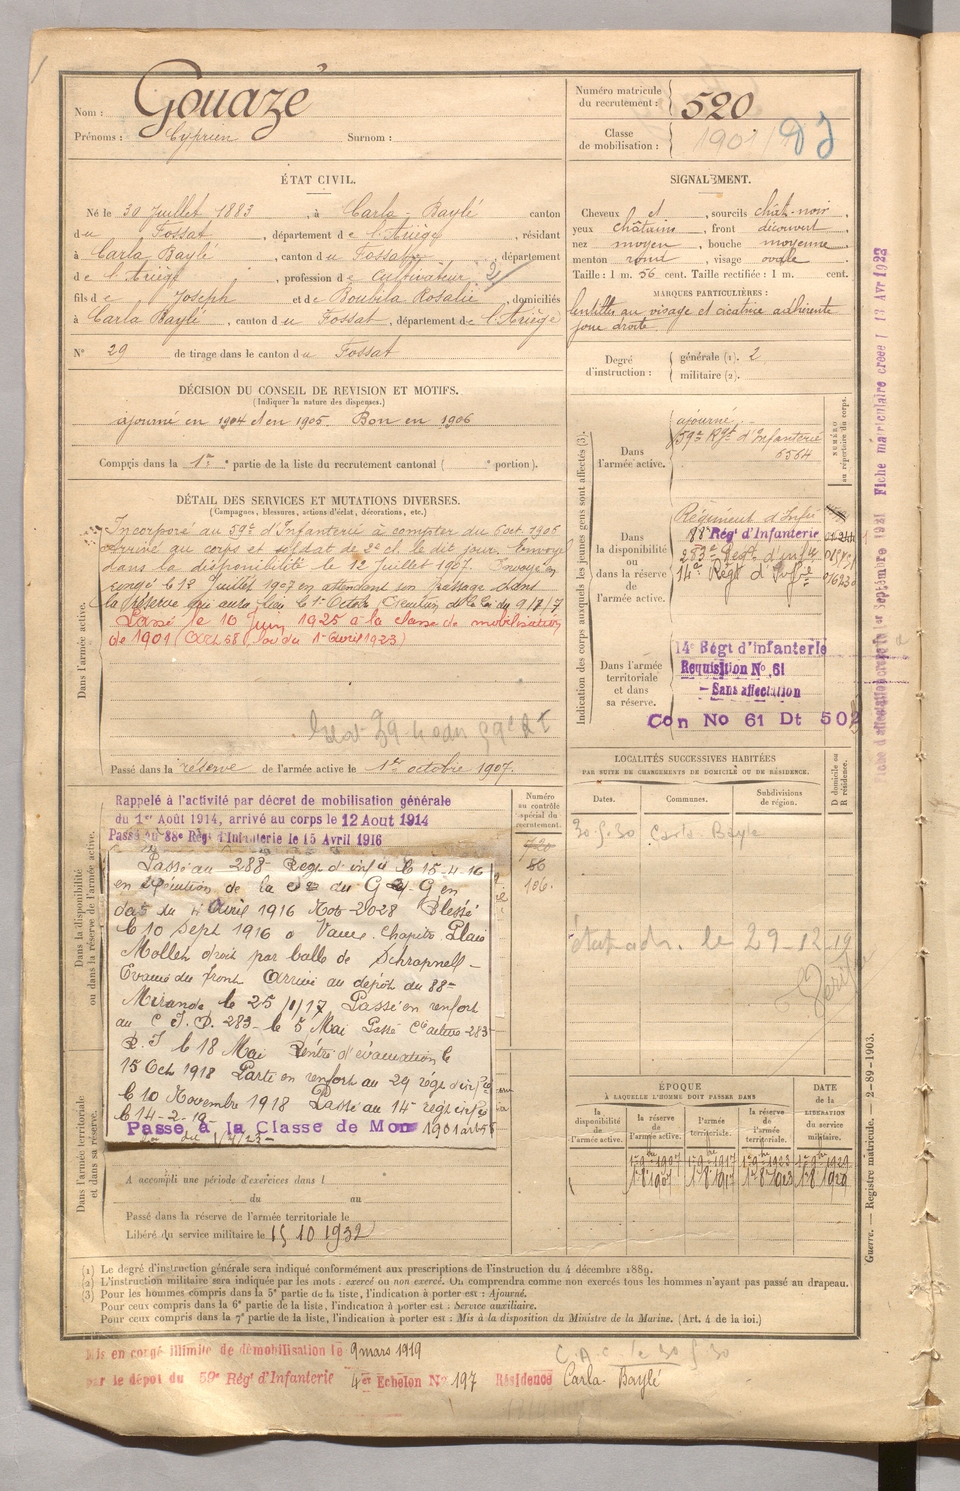 Nom : Gouazé
Prénoms : Cyprien Surnom :
Numéro matricule du recrutement : 520
Classe de mobilisation : 1901
ÉTAT CIVIL.
Né le 30 Juillet 1883, à Carla-Baylé canton
du Fossat, département de l'Ariège, résidant
à Carla Baylé, canton du Fossat, département
de l'Ariège, profession de Cultivateur
fils de Joseph et de Boubila Rosalie, domiciliés
à Carla Baylé, canton du Fossat, département de l'Ariège
N° 29 de tirage dans le canton du Fossat
SIGNALEMENT.
Cheveux et, sourcils chât-noir,
yeux châtains, front découvert,
nez moyen, bouche moyenne,
menton rond, visage ovale.
Taille : 1 m. 56 cent. Taille rectifiée : 1 m. cent.
MARQUES PARTICULIÈRES :
lentilles au visage et cicatrice adhérente
joue droite.
Degré d'instruction : générale (1). 2
militaire (2).
DÉCISION DU CONSEIL DE REVISION ET MOTIFS.
(Indiquer la nature des dispenses.)
ajourné en 1904 et en 1905. Bon en 1906
Compris dans la 1re partie de la liste du recrutement cantonal ( portion).
DÉTAIL DES SERVICES ET MUTATIONS DIVERSES.
(Campagnes, blessures, actions d'éclat, décorations, etc.)
Dans l'armée active.
Incorporé au 59e d'Infanterie à compter du 6 oct. 1905
Arrivé au corps et soldat de 2e cl. le dit jour. Envoyé
dans la disponibilité le 12 Juillet 1907. Envoyé en
congé le 12 Juillet 1907 en attendant son passage dans
la réserve qui aura lieu le 1er Octobre
Passé le 10 Juin 1925 à la classe de mobilisation
de 1901 (Art 58 Loi du 1er Avril 1923)
Passé dans la réserve de l'armée active le 1er octobre 1907.
Indication des corps auxquels les jeunes gens sont affectés (3).
NUMÉRO au répertoire du corps.
Dans l'armée active.
ajourné
59e Rgt d'Infanterie
6564
Dans la disponibilité ou dans la réserve de l'armée active.
Régiment d'Infie
88e Rég d'Infanterie
283e Régt d'infie
14e Régt d'Infie 01623
Dans l'armée territoriale et dans sa réserve.
14e Régt d'Infanterie
Requisition No. 61
- Sans affectation
Con No 61 Dt 502
Fiche matriculaire créée l 13 Avr 1923
LOCALITÉS SUCCESSIVES HABITÉES
PAR SUITE DE CHANGEMENTS DE DOMICILE OU DE RÉSIDENCE.
Dates. Communes. Subdivisions de région. D domicile ou R résidence.
30.5.30 Carla-Bayle
le 29-12-19
Dans la disponibilité ou dans la réserve de l'armée active.
Rappelé à l'activité par décret de mobilisation générale
du 1er Août 1914, arrivé au corps le 12 Aout 1914
Passé au 88e Rég d'Infanterie le 15 Avril 1916
Numéro au contrôle spécial du recrutement.
86
106.
Passé au 288e Regt d'infie le 15-4-16
en exécution de la du G Q G en
date du 4 Avril 1916 Not-2028 Blessé
le 10 Sept 1916 a Vaux-Chapitre Plaie
Mollet droit par balle de Schrapnell-
Évacué du front Arrivé au dépôt du 88-
Mirande le 25/1/17 Passé en renfort
au C.I.D. 283- le 5 Mai Passé Cie active 283
R.I le 18 Mai Rentré d'évacuation le
15 Oct 1918 Parti en renfort au 29 régt d'infie
le 10 Novembre 1918 Passé au 14e regt infie
le 14-2-19
Passé à la Classe de Mon 1901 art 58
du 1/4/23-
Dans l'armée territoriale et dans sa réserve.
A accompli une période d'exercices dans l
du au
Passé dans la réserve de l'armée territoriale le
Libéré du service militaire le 15 10 1932
ÉPOQUE
À LAQUELLE L'HOMME DOIT PASSER DANS
la disponibilité de l'armée active. la réserve de l'armée active. l'armée territoriale. la réserve de l'armée territoriale. DATE de la LIBÉRATION du service militaire.
1r 8 1907 1r 8 1917 1r 8 1923 1r 8 1929
Guerre. — Registre matricule. — 2-89-1903.
(1) Le degré d'instruction générale sera indiqué conformément aux prescriptions de l'instruction du 4 décembre 1889.
(2) L'instruction militaire sera indiquée par les mots : exercé ou non exercé. On comprendra comme non exercés tous les hommes n'ayant pas passé au drapeau.
(3) Pour les hommes compris dans la 5e partie de la liste, l'indication à porter est : Ajourné.
Pour ceux compris dans la 6e partie de la liste, l'indication à porter est : Service auxiliaire.
Pour ceux compris dans la 7e partie de la liste, l'indication à porter est : Mis à la disposition du Ministre de la Marine. (Art. 4 de la loi.)
Mis en congé illimité de démobilisation le 9 mars 1919
par le dépot du 59e Rég d'Infanterie 4er Echelon No 197 Résidence Carla-Baylé
C.A.C. le 30 5 30